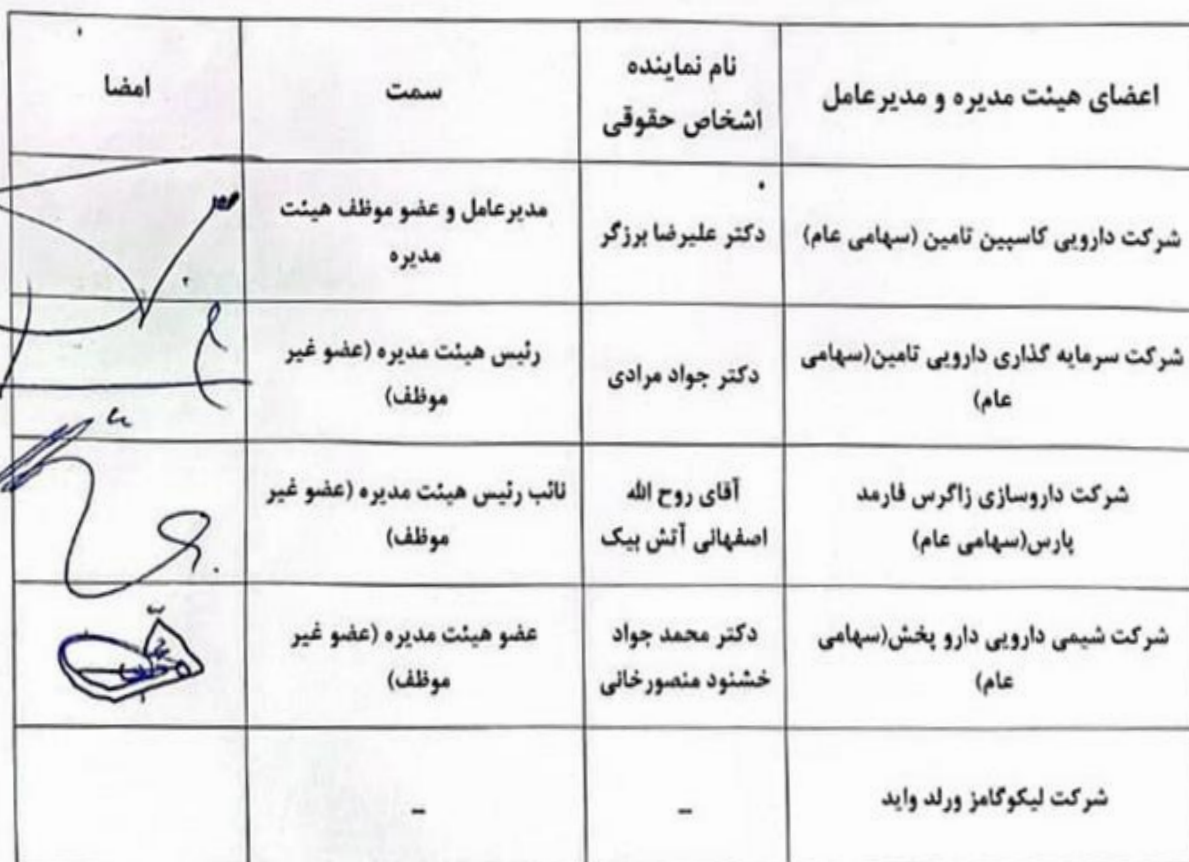 اعضای هیئت مدیره و مدیرعامل
نام نماینده
اشخاص حقوقی
سمت
امضا
شرکت دارویی کاسپین تامین (سهامی عام)
دکتر علیرضا برزگر
مدیرعامل و عضو موظف هیئت
مدیره
شرکت سرمایه گذاری دارویی تامین(سهامی
عام)
دکتر جواد مرادی
رئیس هیئت مدیره (عضو غیر
موظف)
شرکت داروسازی زاگرس فارمد
پارس(سهامی عام)
آقای روح الله
اصفهانی آتش بیک
نائب رئیس هیئت مدیره (عضو غیر
موظف)
شرکت شیمی دارویی دارو پخش(سهامی
عام)
دکتر محمد جواد
خشنود منصورخانی
عضو هیئت مدیره (عضو غیر
موظف)
شرکت لیکوگامز ورلد واید
-
-